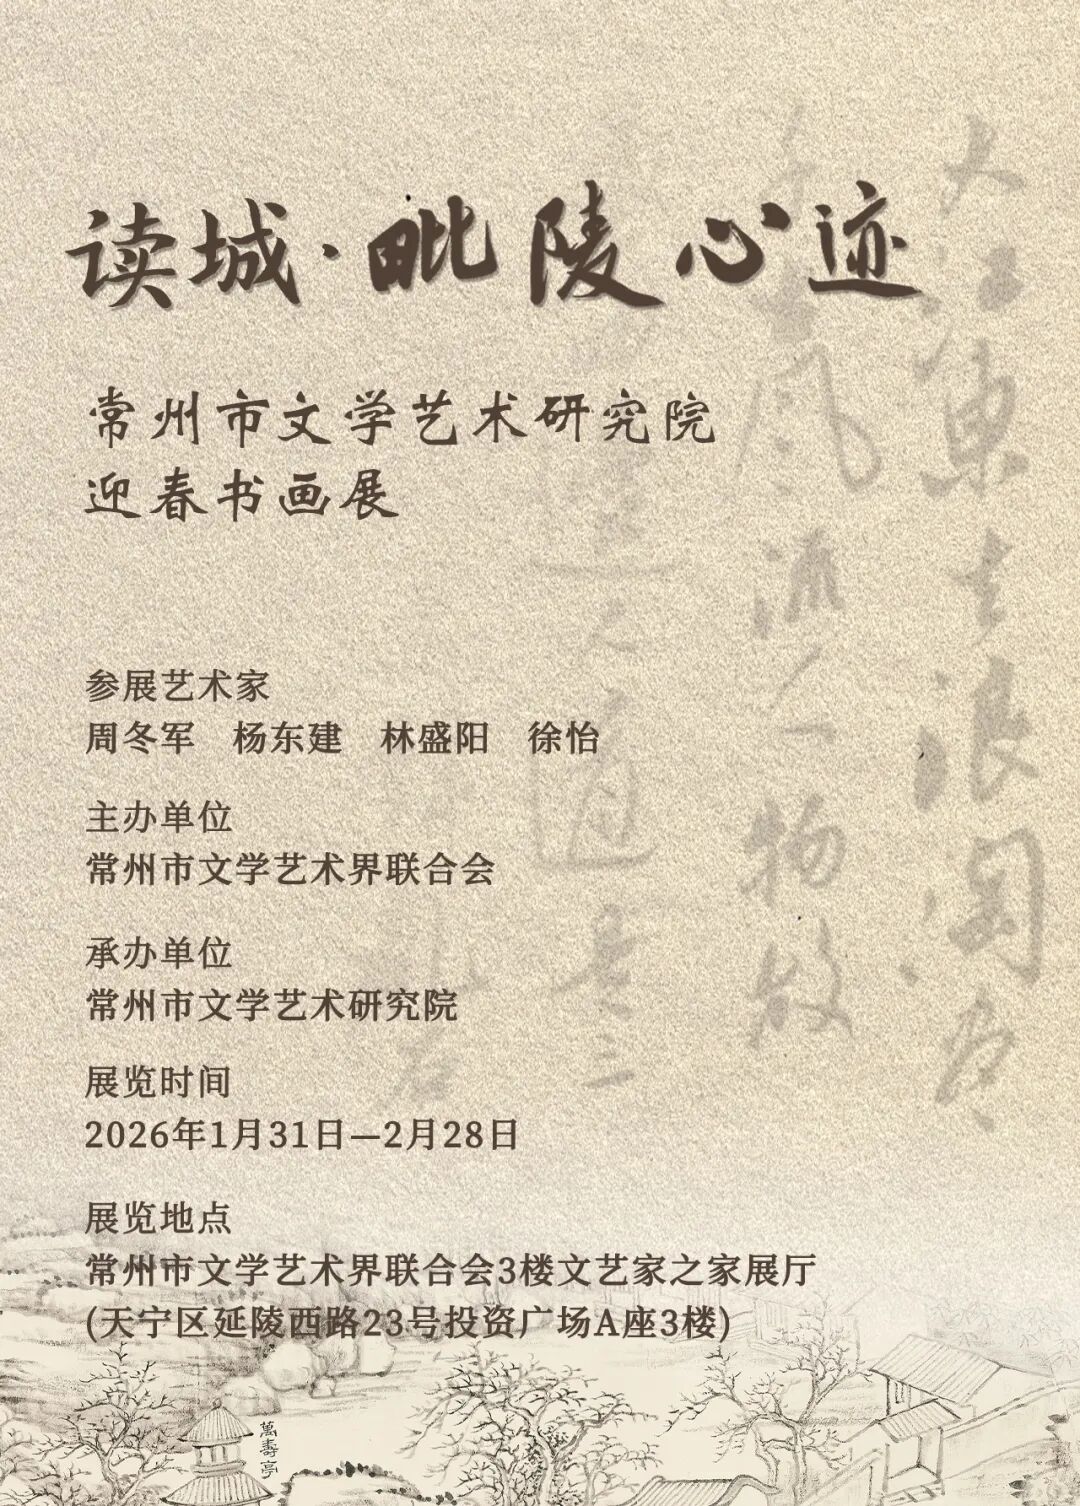 读城·毗陵心迹
常州市文学艺术研究院
迎春书画展
参展艺术家
周冬军 杨东建 林盛阳 徐怡
主办单位
常州市文学艺术界联合会
承办单位
常州市文学艺术研究院
展览时间
2026年1月31日—2月28日
展览地点
常州市文学艺术界联合会3楼文艺家之家展厅
(天宁区延陵西路23号投资广场A座3楼)
大江東去浪淘尽
風流人物故
萬壽亭